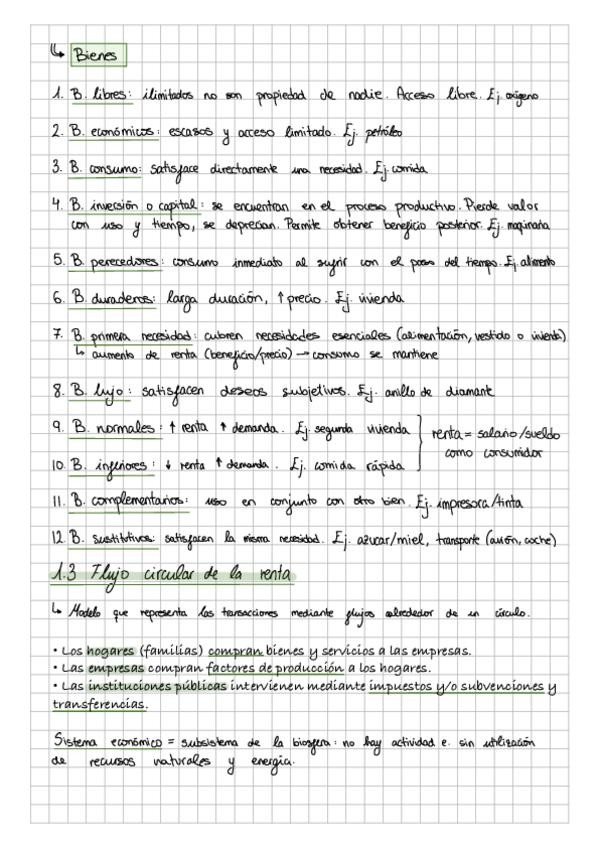 ↳ Bienes
1. B. libres: ilimitados no son propiedad de nadie. Acceso libre. Ej oxígeno
2. B. económicos: escasos y acceso limitado. Ej. petróleo
3. B. consumo: satisface directamente una necesidad. Ej. comida
4. B. inversión o capital: se encuentran en el proceso productivo. Pierde valor
con uso y tiempo, se deprecian. Permite obtener beneficio posterior. Ej. maquinaria
5. B. perecederos: consumo inmediato al sufrir con el paso del tiempo. Ej alimento
6. B. duraderos: larga duración, ↑ precio. Ej. vivienda
7. B. primera necesidad: cubren necesidades esenciales (alimentación, vestido o vivienda)
↳ aumento de renta (beneficio/precio) → consumo se mantiene
8. B. lujo: satisfacen deseos subjetivos. Ej. anillo de diamante
9. B. normales: ↑ renta ↑ demanda. Ej. segunda vivienda
10. B. inferiores: ↓ renta ↑ demanda. Ej. comida rápida
renta = salario/sueldo
como consumidor
11. B. complementarios: uso en conjunto con otro bien. Ej. impresora/tinta
12. B. sustitutivos: satisfacen la misma necesidad. Ej. azucar/miel, transporte (avión, coche)
1.3 Flujo circular de la renta
↳ Modelo que representa las transacciones mediante flujos alrededor de un círculo.
• Los hogares (familias) compran bienes y servicios a las empresas.
• Las empresas compran factores de producción a los hogares.
• Las instituciones públicas intervienen mediante impuestos y/o subvenciones y
transferencias.
Sistema económico = subsistema de la biosfera: no hay actividad e. sin utilización
de recursos naturales y energía.